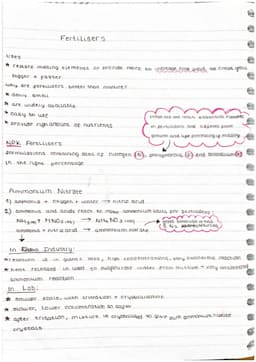 Fertilisers
Uses
* replace missing elements or provide more to increase crop yield, as crops grow
bigger + faster
Why are fertilisers better than manure?
* don't smell
* are widely available
* easy to use
* provide right amount of nutrients
NPK Fertilisers
formulations containing salts of nitrogen (N), phosphorus (P) and potassium (K)
in the right percentage
Ammonium Nitrate
1) ammonia + oxygen + water → nitric acid
2) ammonia and acids react to make ammonium salts
NH3 + HNO3 (aq) → NH4NO3 (aq)
ammonia + nitric acid → ammonium nitrate
In Industry:
* reaction is in giant vats, high concentrations, very exothermic reaction
* heat released is used to evaporate water from mixture → very concentrated
ammonium nitrate
In Lab:
* smaller scale, with titration + crystallisation
* slower, lower concentration so safer
* after titration, mixture is crystallised to give pure ammonium nitrate
crystals